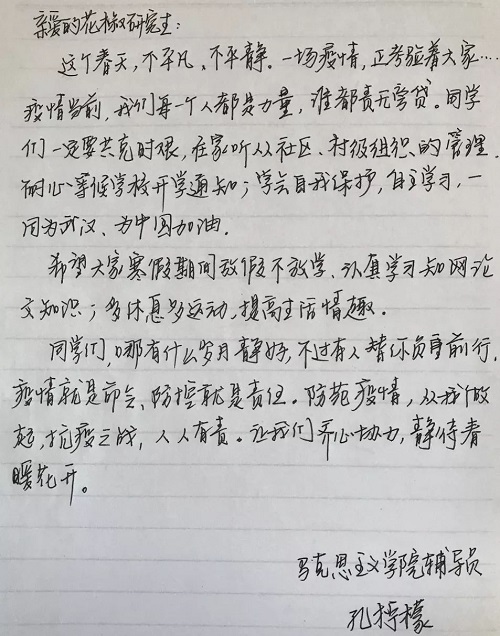 亲爱的花椒研究生：
这个春天，不平凡、不平静。一场疫情，正考验着大家……
疫情当前，我们每一个人都是力量，谁都责无旁贷。同学
们一定要共克时艰，在家听从社区、村级组织的管理，
耐心等候学校开学通知；学会自我保护，自主学习，一
同为武汉、为中国加油。
希望大家寒假期间放假不放学、认真学习知网论
文知识；多休息多运动，提高生活情趣。
同学们，哪有什么岁月静好，不过有人替你负重前行，
疫情就是命令、防控就是责任。防范疫情，从我做
起，抗疫之战，人人有责。让我们齐心协力，静待春
暖花开。
马克思主义学院辅导员
孔柠檬